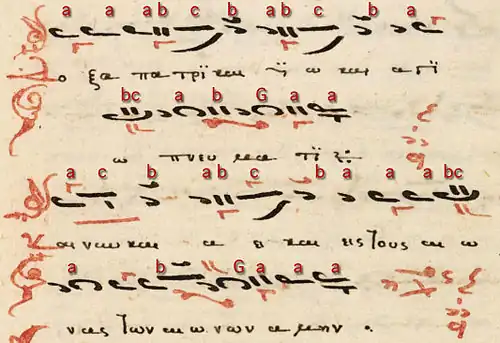 a a ab c b ab c b a
ο ξα πα τρϊ και ϋ ω και α γϊ
bc a b G a a
ω πνευ μα τϊ
a c b ab c b a a a bc
αι νυν και α ει και εις τους αι ω
a b G a a a
νας των αι ω νων α μην .